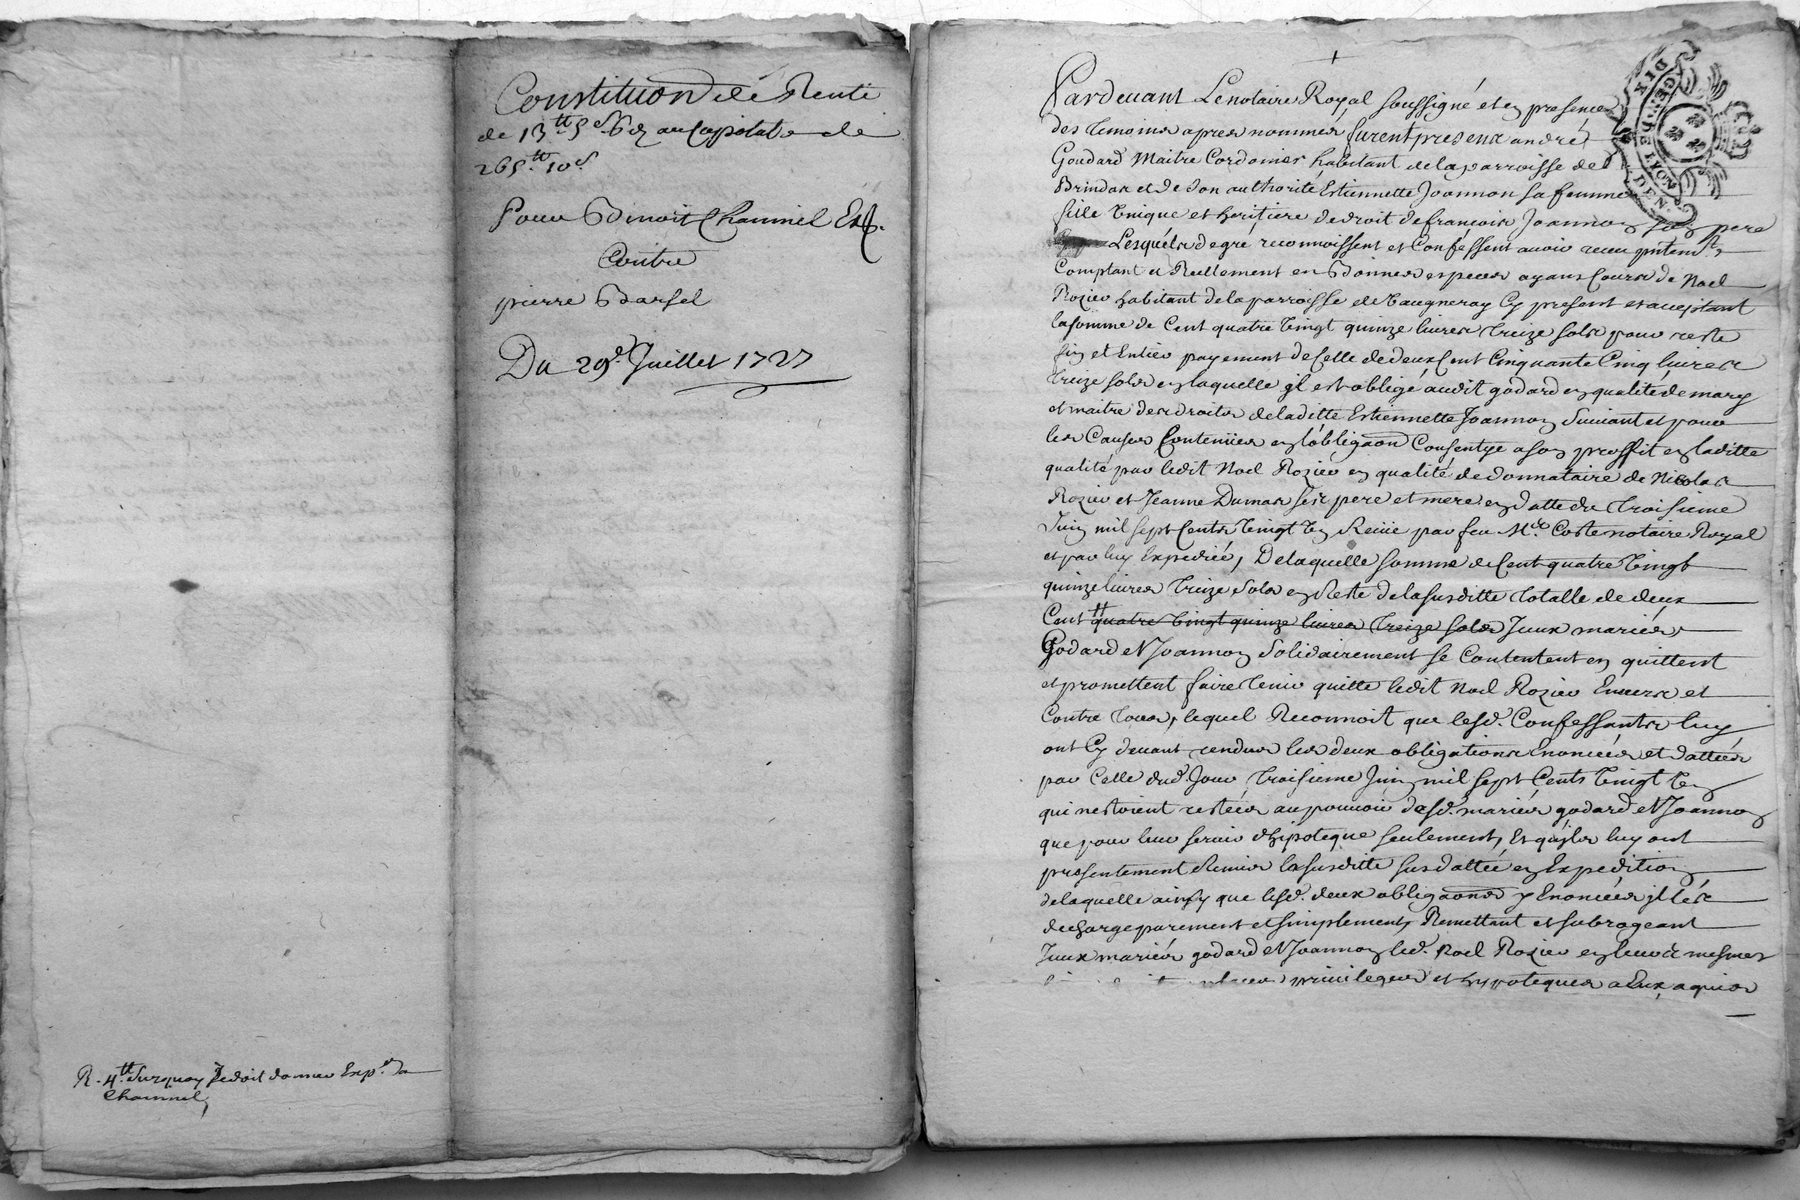 Constitution de Rente
de 13tt 5s 6d au Capital de
265tt 10s
Pour Benoit Chaumel
Contre
pierre Barsel
Du 29e Juillet 1727
R. 4tt Surquoy Je doit donner Expon a
Chaumel
Pardevant Le notaire Royal soussigné et en presence
des temoins apres nommes furent presens andré
Goudard Maitre Cordonier habitant de la parroisse de
Brindas et de son authorité Estiennette Joannon sa femme
fille Unique et heritiere de droit de françois Joannon son pere
Lesquels de gre reconnoissent et Confessent avoir receu pntemt
Comptant et Reellement en Bonnes especes ayans Cours de Noel
Rozier habitant de la parroisse de Vaugneray Cy present et acceptant
la somme de Cent quatre Vingt quinze livres treize sols pour reste
fin et Entier payement de Celle de deux Cent Cinquante Cinq livres
treize sols en laquelle jl est obligé audit godard en qualité de mary
et maitre des droits de laditte Estiennette Joannon Suivant et pour
les Causes Contenües en lobligaon Consentye a son proffit en laditte
qualité par ledit Noel Rozier en qualité de donnataire de Nicolas
Rozier et Jeanne Dumas ses pere et mere en datte du troisieme
Juin mil sept Cents Vingt Un Reüe par feu Me Coste notaire Royal
et par luy Expediée, De laquelle somme de Cent quatre Vingt
quinze livres treize Sols en Reste de la susditte totalle de deux
Cent tt quatre Vingt quinze livres treize sols Jceux mariés
Godard et Joannon Solidairement se Contentent en quittent
et promettent faire tenir quitte ledit Noel Rozier Envers et
Contre tous, lequel Reconnoit que lesd. Confessants luy
ont Cy devant rendus les deux obligations Enoncées et dattées
par Celle dud. Jour troisieme Juin mil sept Cents Vingt Un
qui nestoient restées au pouvoir desd. mariés godard et Joannon
que pour leur servir dhipoteque seulement, Et quils luy ont
presentement Remis la susditte sus dattée en Expedition
de laquelle ainsy que lesd. deux obligaons y Enoncées jl les
decharge purement et simplement, Remettant et subrogeant
Jceux mariés godard et Joannon led. Noel Rozier en leurs mesmes
places privileges et hypoteques a Eux aquis
GE DE LYON
DEN.